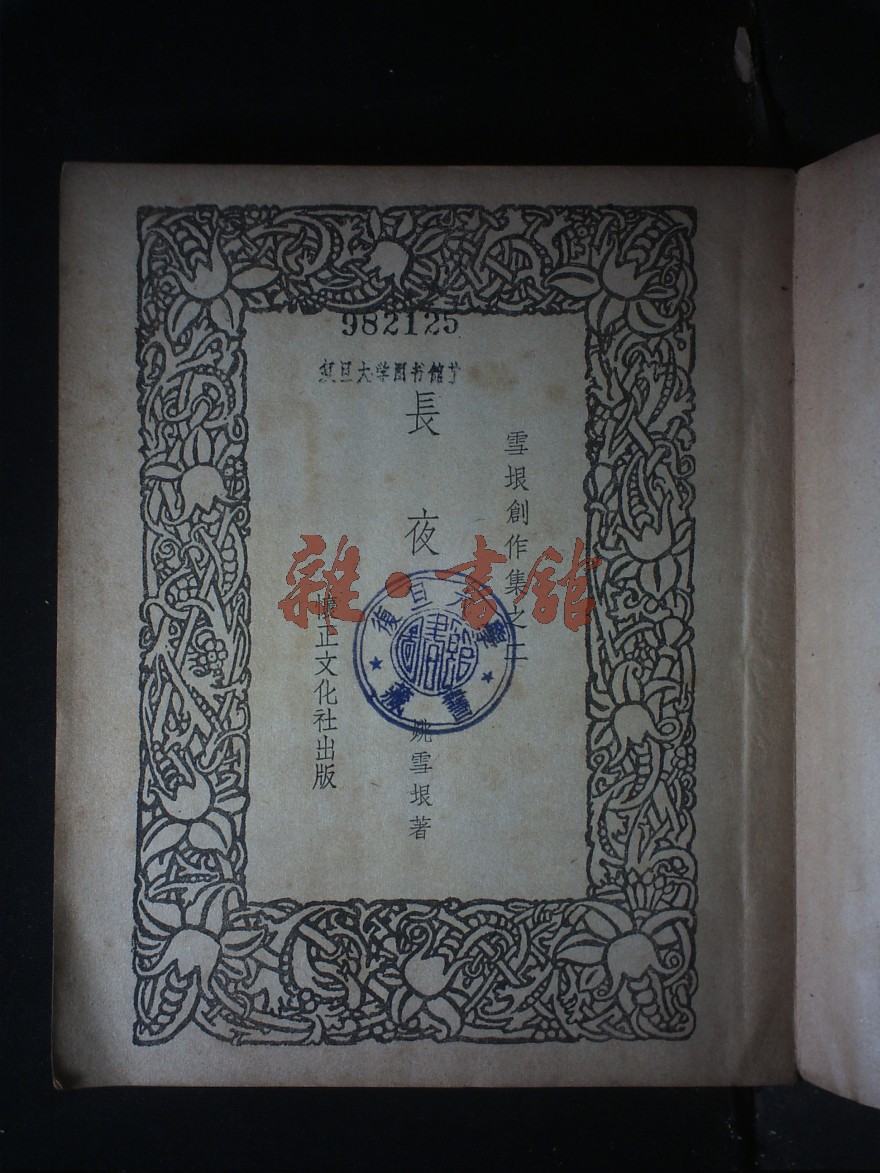 982125
复旦大学图书馆
雪垠創作集之二
長夜
姚雪垠著
懷正文化社出版
雜·書館
復旦大學
圖書館
藏書